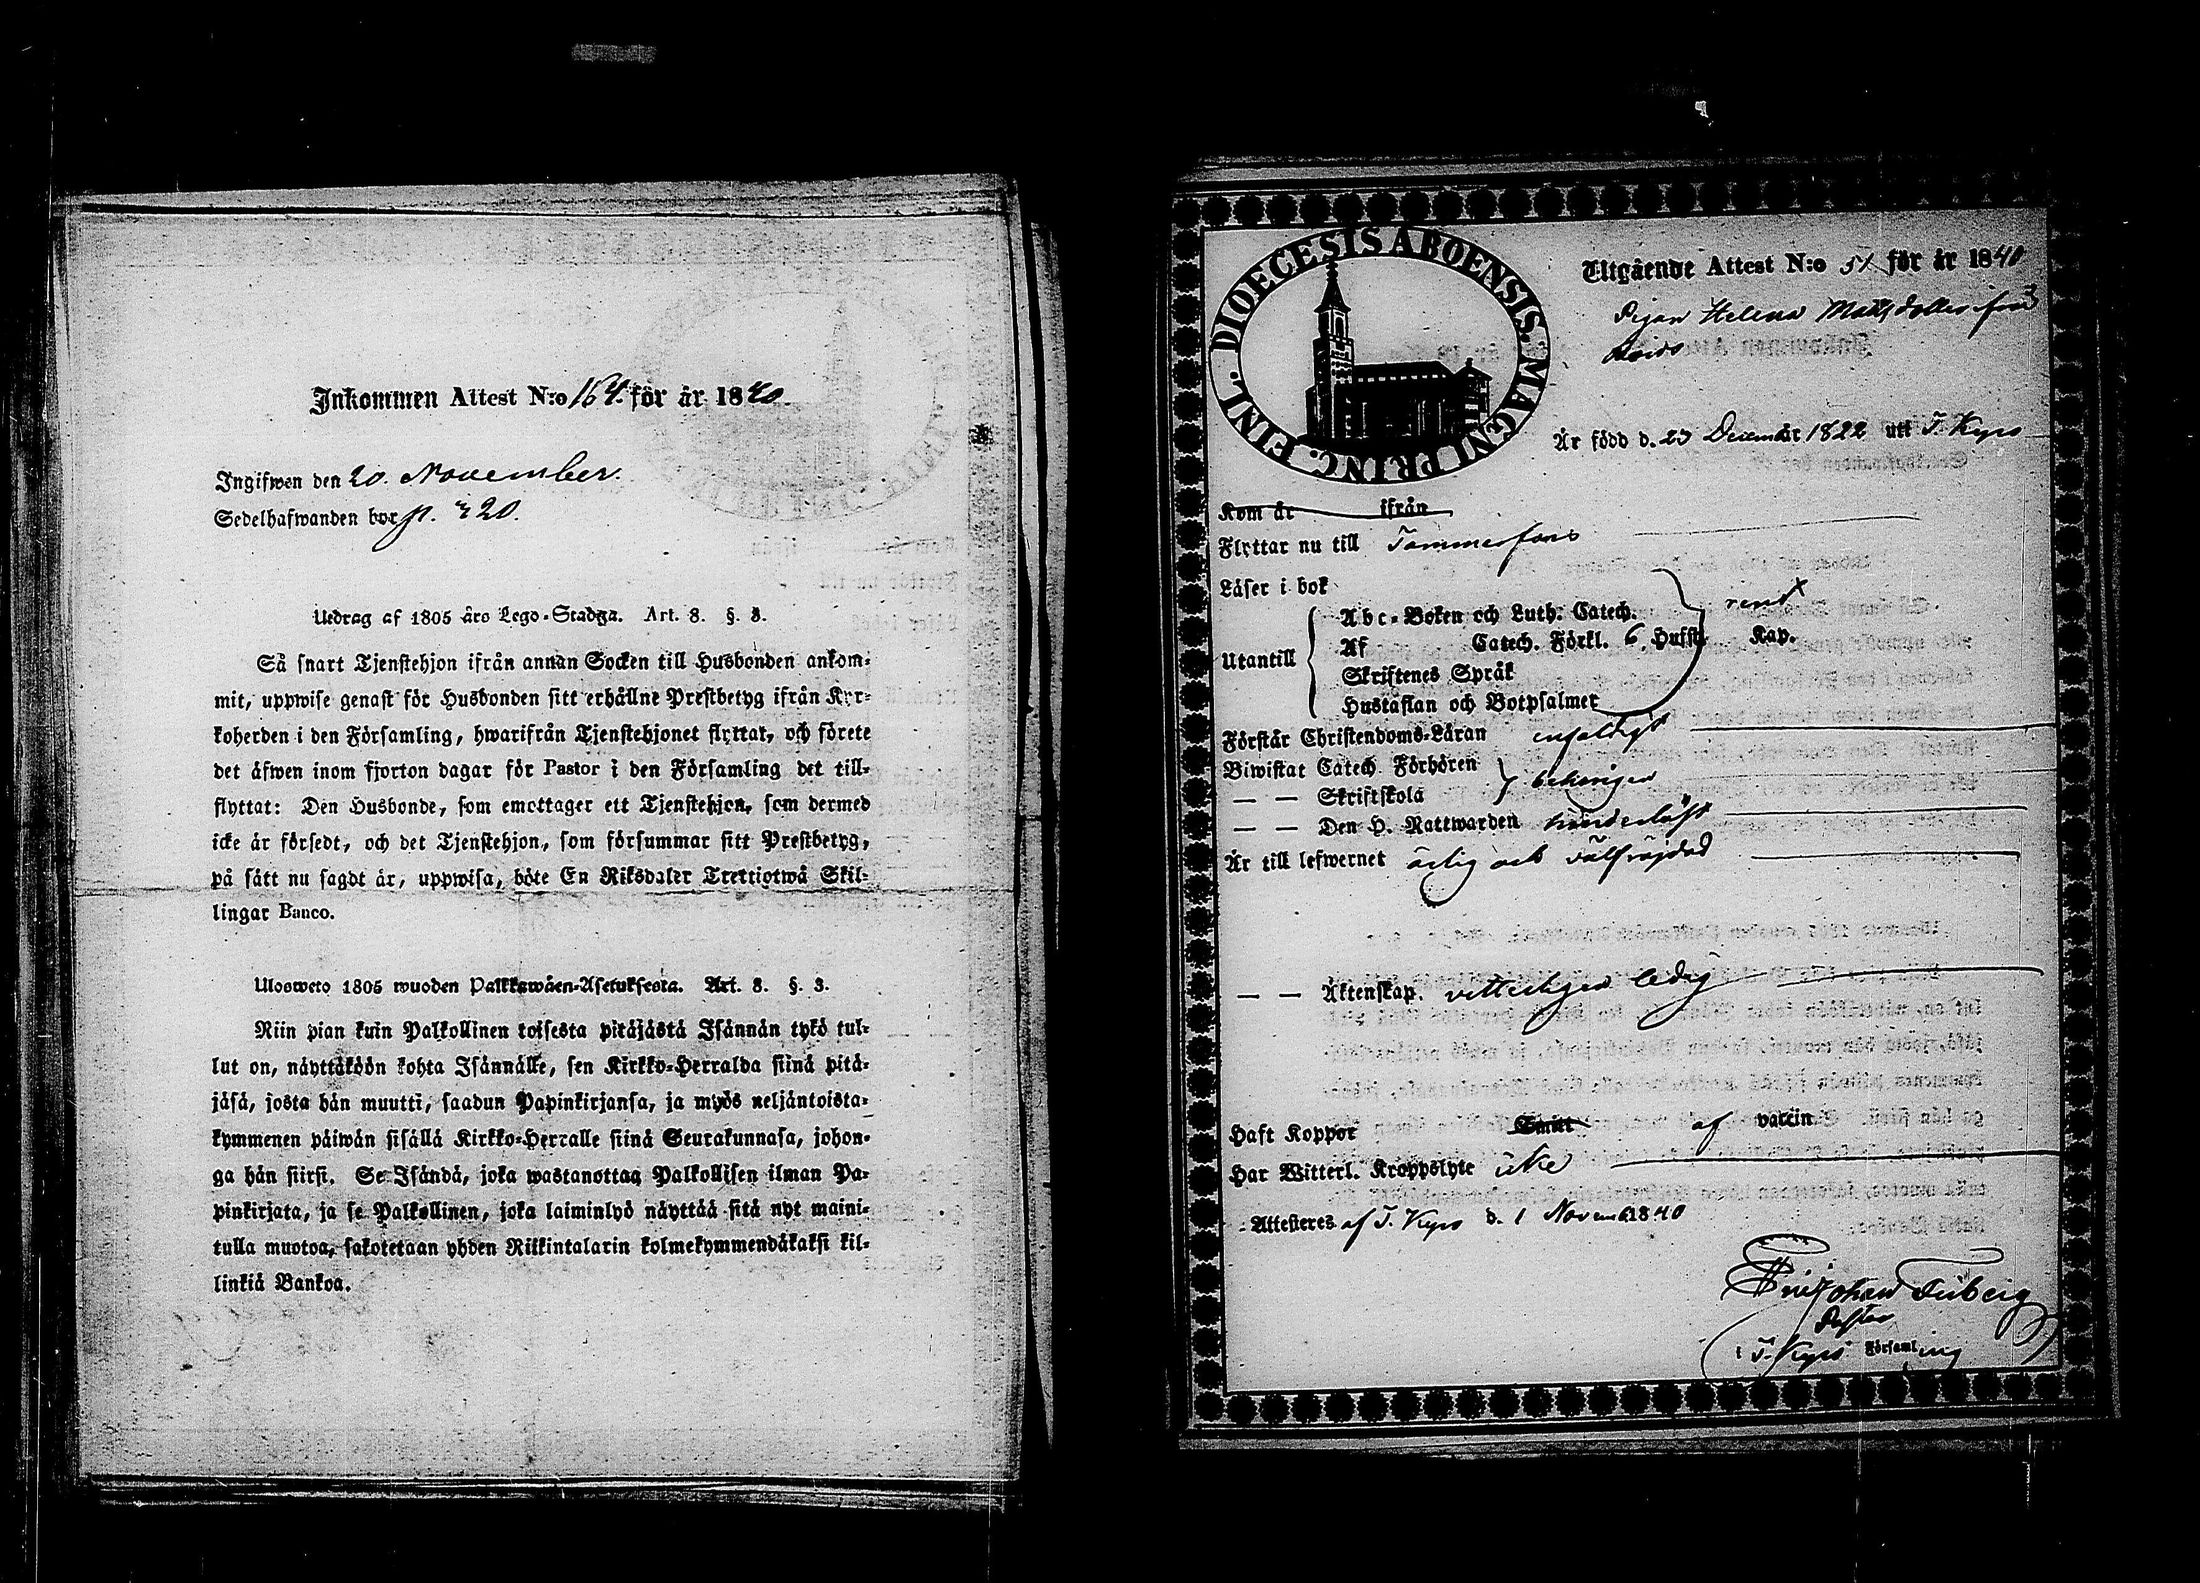 Inkommen Attest N:o 164. för år 1840.
Ingifwen den 20. November.
Sedelhafwanden bor p. 320.
Utdrag af 1805 års Lego-Stadga. Art. 8. §. 3.
Så snart Tjenstehjon ifrån annan Socken till Husbonden ankom-
mit, uppwise genast för Husbonden sitt erhållne Prestbetyg ifrån Kyr-
koherden i den Församling, hwarifrån Tjenstehjonet flyttat, och förete
det äfwen inom fjorton dagar för Pastor i den Församling det till-
flyttat: Den Husbonde, som emottager ett Tjenstehjon, som dermed
icke är försedt, och det Tjenstehjon, som försummar sitt Prestbetyg,
på sätt nu sagdt är, uppwisa, böte En Riksdaler Trettiotwå Skil-
lingar Banco.
Ulosweto 1805 wuoden Palkkawäen-Asetuksesta. Art. 8. §. 3.
Niin pian kuin Palkollinen toisesta pitäjästä Isännän tykö tul-
lut on, näyttäköön kohta Isännälle, sen Kirkko-Herralda siinä pitä-
jäsä, josta hän muutti, saadun Papinkirjansa, ja myös neljäntoista-
kymmenen päiwän sisällä Kirkko-Herralle siinä Seurakunnasa, johon-
ga hän siirsi. Se Isändä, joka wastanottaa Palkollisen ilman Pa-
pinkirjata, ja se Palkollinen, joka laiminlyö näyttää sitä nyt maini-
tulla muotoa, sakotetaan yhden Riikintalarin kolmekymmendäkaksi kil-
linkiä Bankoa.
DIOECESIS ABOENSIS. MAGNI PRINC. FINL.
Utgående Attest N:o 51 för år 1840
Pigan Helena Matsdotter ifrån
Är född d. 23 December 1822 uti T. Kyro
Kom år ifrån
Flyttar nu till Tammerfors
Läser i bok rent
Utantill
Abc-Boken och Luth. Catech.
Af Catech. Förkl. 6. Hufst. Kap.
Skriftenes Språk
Hustaflan och Botpsalmer
Förstår Christendoms-Läran enfaldigt
Biwistat Catech. Förhören
— — Skriftskola behörigen
— — Den H. Nattwarden
Är till lefwernet ärlig och välfrejdad
— — Äktenskap. vitterligen ledig
Haft Koppor Smitt af vaccin
Har Witterl. Kroppslyte icke
Attesteres af T. Kyro d. 1 Novemb 1840
Pastor
i T. Kyro Församling